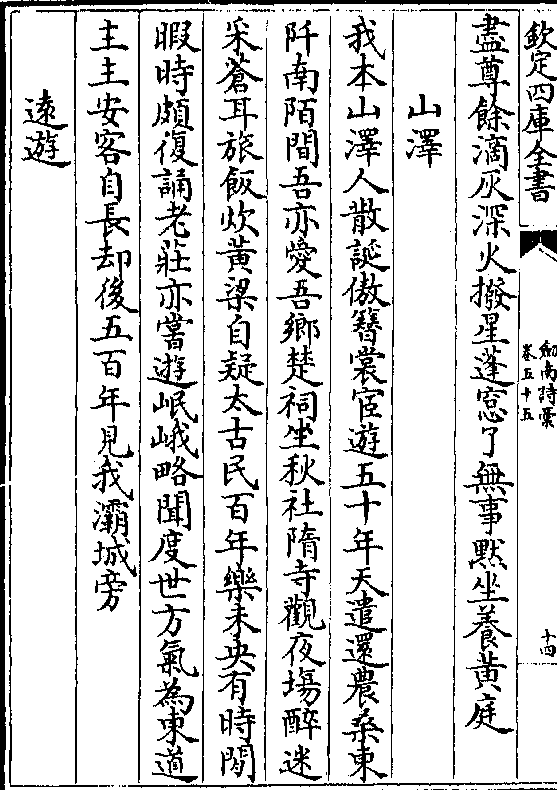 欽定四庫全書
劒南詩藁
卷五十五
十四
盡尊餘滴灰深火撥星蓬窓了無事黙坐養黄庭
山澤
我本山澤人散誕傲簪裳宦遊五十年天遣還農桑東
阡南陌間吾亦愛吾鄉楚祠坐秋社隋寺觀夜塲醉迷
采蒼耳旅飯炊黄粱自疑太古民百年樂未央有時閒
暇時頗復誦老莊亦嘗遊岷峨略聞度世方氣為東道
主主安客自長却後五百年見我灞城旁
逺遊